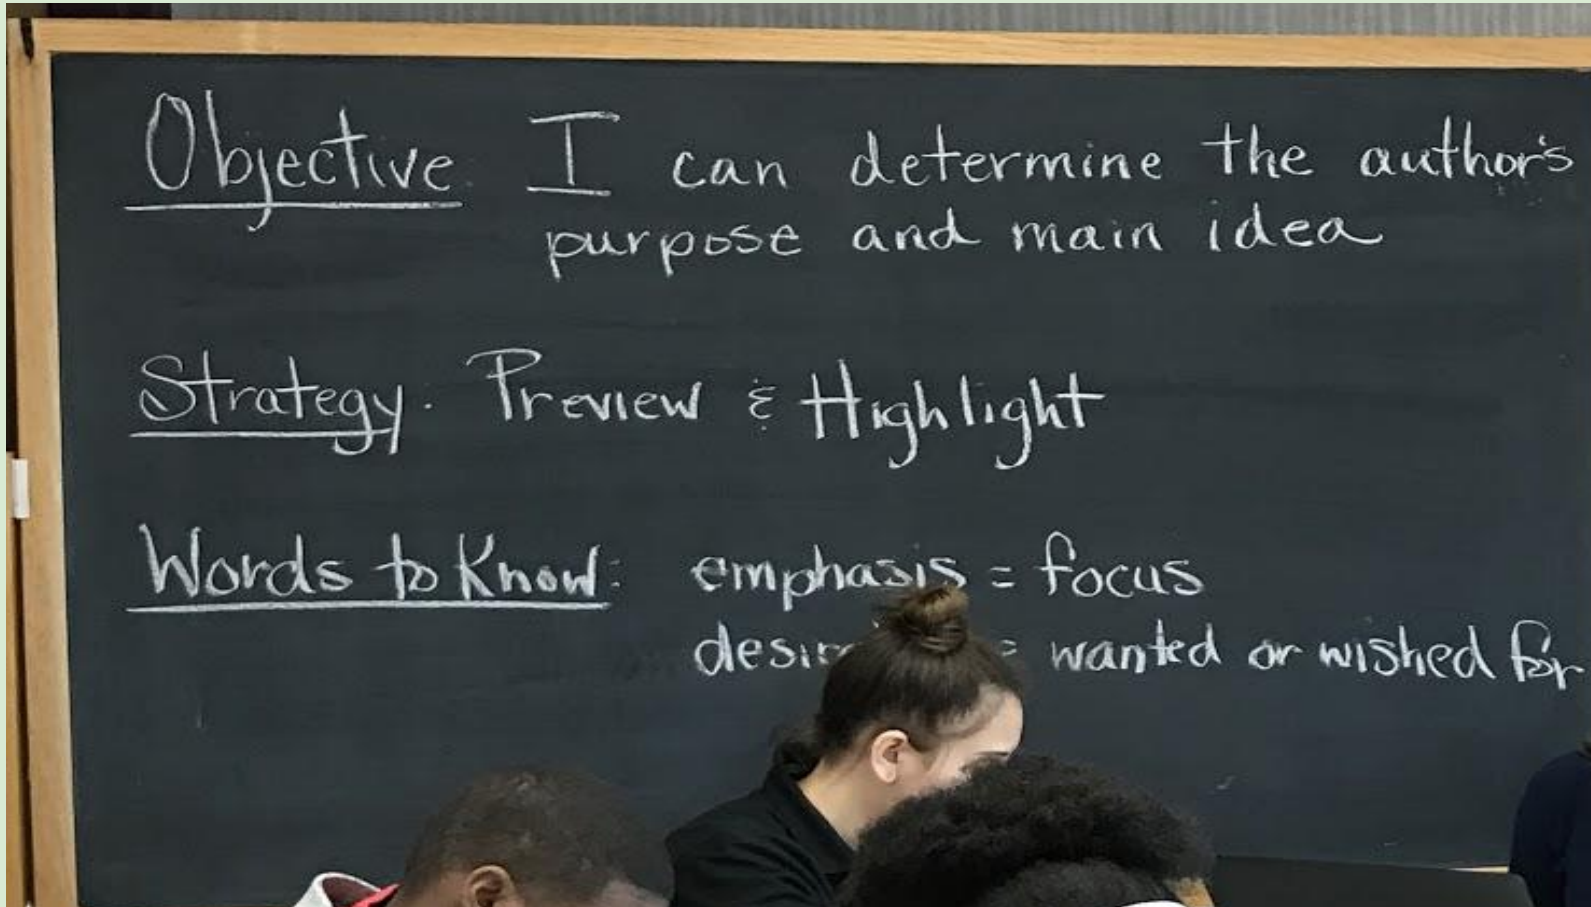 Objective I can determine the author's
purpose and main idea
Strategy. Preview & Highlight
Words to Know: emphasis = focus
= wanted or wished for